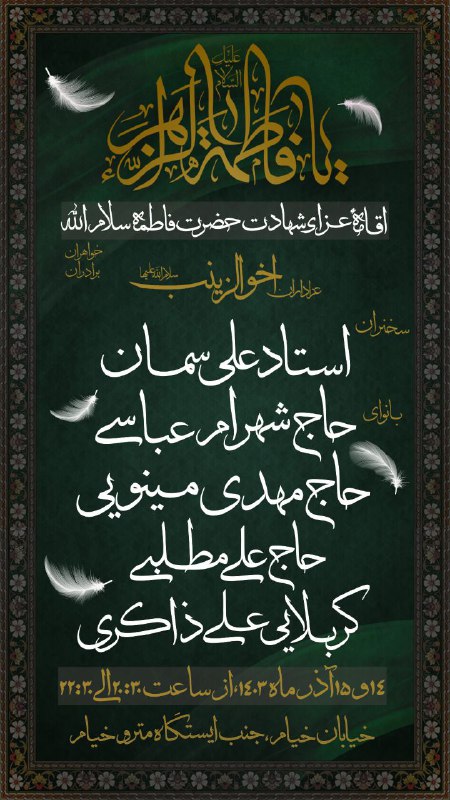 یا فاطمة الزهراء
علیک السلام
اقامهٔ عزای شهادت حضرت فاطمه سلام الله
خواهران
برادران
عزاداران اخوالزینب سلام الله علیها
سخنران
استاد علی سمان
بانوای
حاج شهرام عباسی
حاج مهدی مینویی
حاج علی مطلبی
کربلایی علی ذاکری
۱۴ و ۱۵ آذر ماه ۱۴۰۳، از ساعت ۲۰:۳۰ الی ۲۲:۳۰
خیابان خیام، جنب ایستگاه مترو خیام